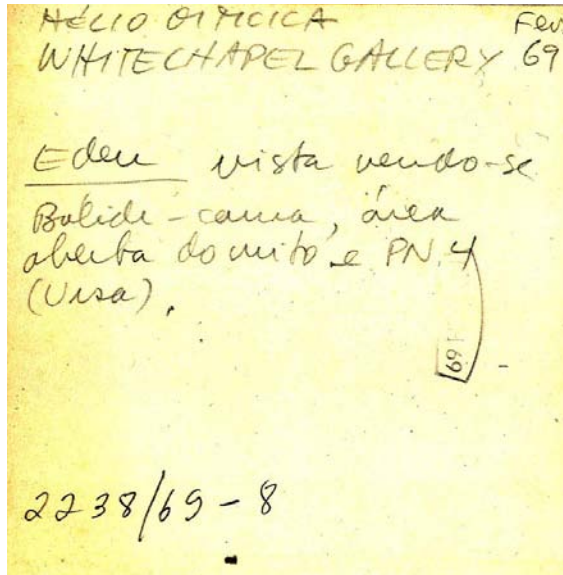 HÉLIO OITICICA Fev.
WHITECHAPEL GALLERY 69
Eden vista vendo-se
Bólide-cama, área
aberta do mito e PN.4
(Ursa).
69
2238/69-8